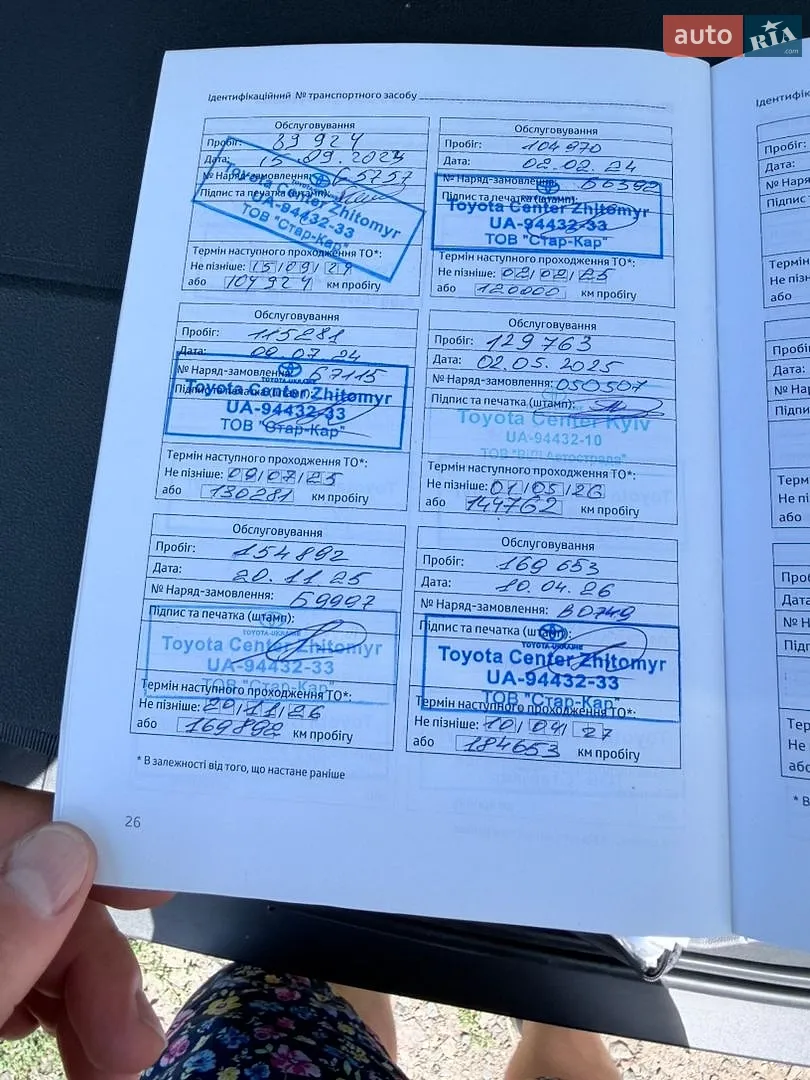 auto RIA.com
Ідентифікаційний № транспортного засобу
Обслуговування
Пробіг: 89 924
Дата: 15.09.2023
№ Наряд-замовлення: 65757
Підпис та печатка (штамп):
Toyota Center Zhitomyr
UA-94432-33
ТОВ "Стар-Кар"
Термін наступного проходження ТО*:
Не пізніше: 15/09/24
або 104924 км пробігу
Обслуговування
Пробіг: 104970
Дата: 02.02.24
№ Наряд-замовлення: 66392
Підпис та печатка (штамп):
Toyota Center Zhitomyr
UA-94432-33
ТОВ "Стар-Кар"
Термін наступного проходження ТО*:
Не пізніше: 02/02/25
або 120000 км пробігу
Обслуговування
Пробіг: 115281
Дата: 09.07.24
№ Наряд-замовлення: 67115
Підпис та печатка (штамп):
TOYOTA-UKRAINE
Toyota Center Zhitomyr
UA-94432-33
ТОВ "Стар-Кар"
Термін наступного проходження ТО*:
Не пізніше: 09/07/25
або 130281 км пробігу
Обслуговування
Пробіг: 129763
Дата: 02.05.2025
№ Наряд-замовлення: 050507
Підпис та печатка (штамп):
Toyota Center Kyiv
UA-94432-10
Термін наступного проходження ТО*:
Не пізніше: 01/05/26
або 144762 км пробігу
Обслуговування
Пробіг: 154892
Дата: 20.11.25
№ Наряд-замовлення: Б9997
Підпис та печатка (штамп):
TOYOTA-UKRAINE
Toyota Center Zhitomyr
UA-94432-33
ТОВ "Стар-Кар"
Термін наступного проходження ТО*:
Не пізніше: 20/11/26
або 169892 км пробігу
Обслуговування
Пробіг: 169653
Дата: 10.04.26
№ Наряд-замовлення: В0749
Підпис та печатка (штамп):
TOYOTA-UKRAINE
Toyota Center Zhitomyr
UA-94432-33
ТОВ "Стар-Кар"
Термін наступного проходження ТО*:
Не пізніше: 10/04/27
або 184653 км пробігу
* В залежності від того, що настане раніше
26